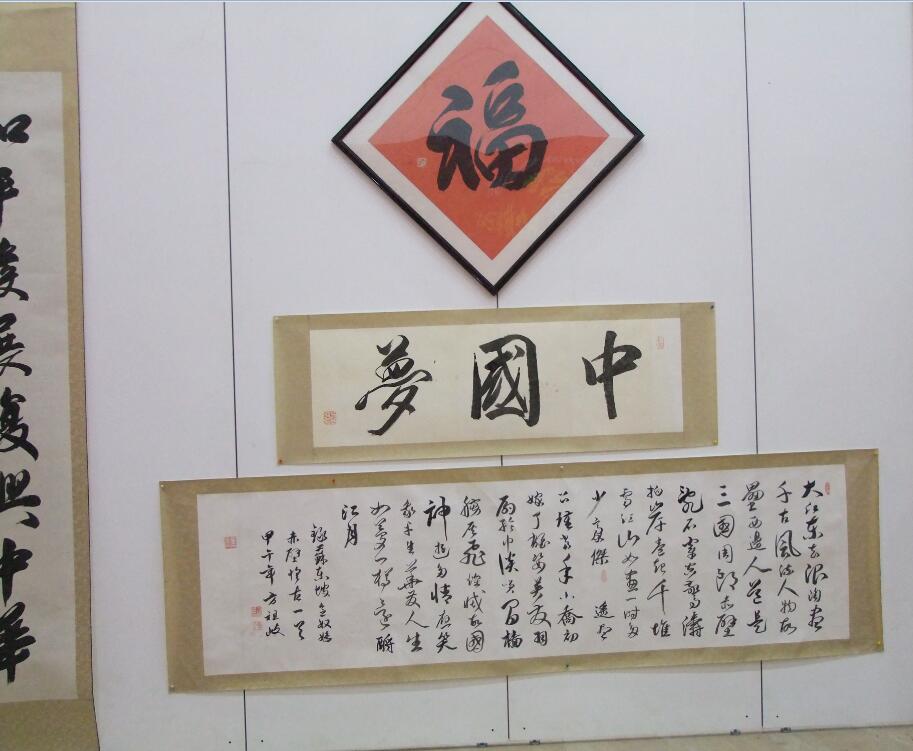 福
中國夢
大江東去浪淘盡
千古風流人物故
壘西邊人道是
三國周郎赤壁
亂石穿空驚濤
拍岸卷起千堆
雪江山如畫一時多
少豪傑 遥想
公瑾當年小喬初
嫁了雄姿英发羽
扇綸巾談笑間檣
櫓灰飛煙滅故國
神遊多情應笑
我早生華发人生
如夢一樽還酹
江月
錄蘇東坡念奴嬌
赤壁懷古一首
甲午年 方祖岐
和平發展復興中華